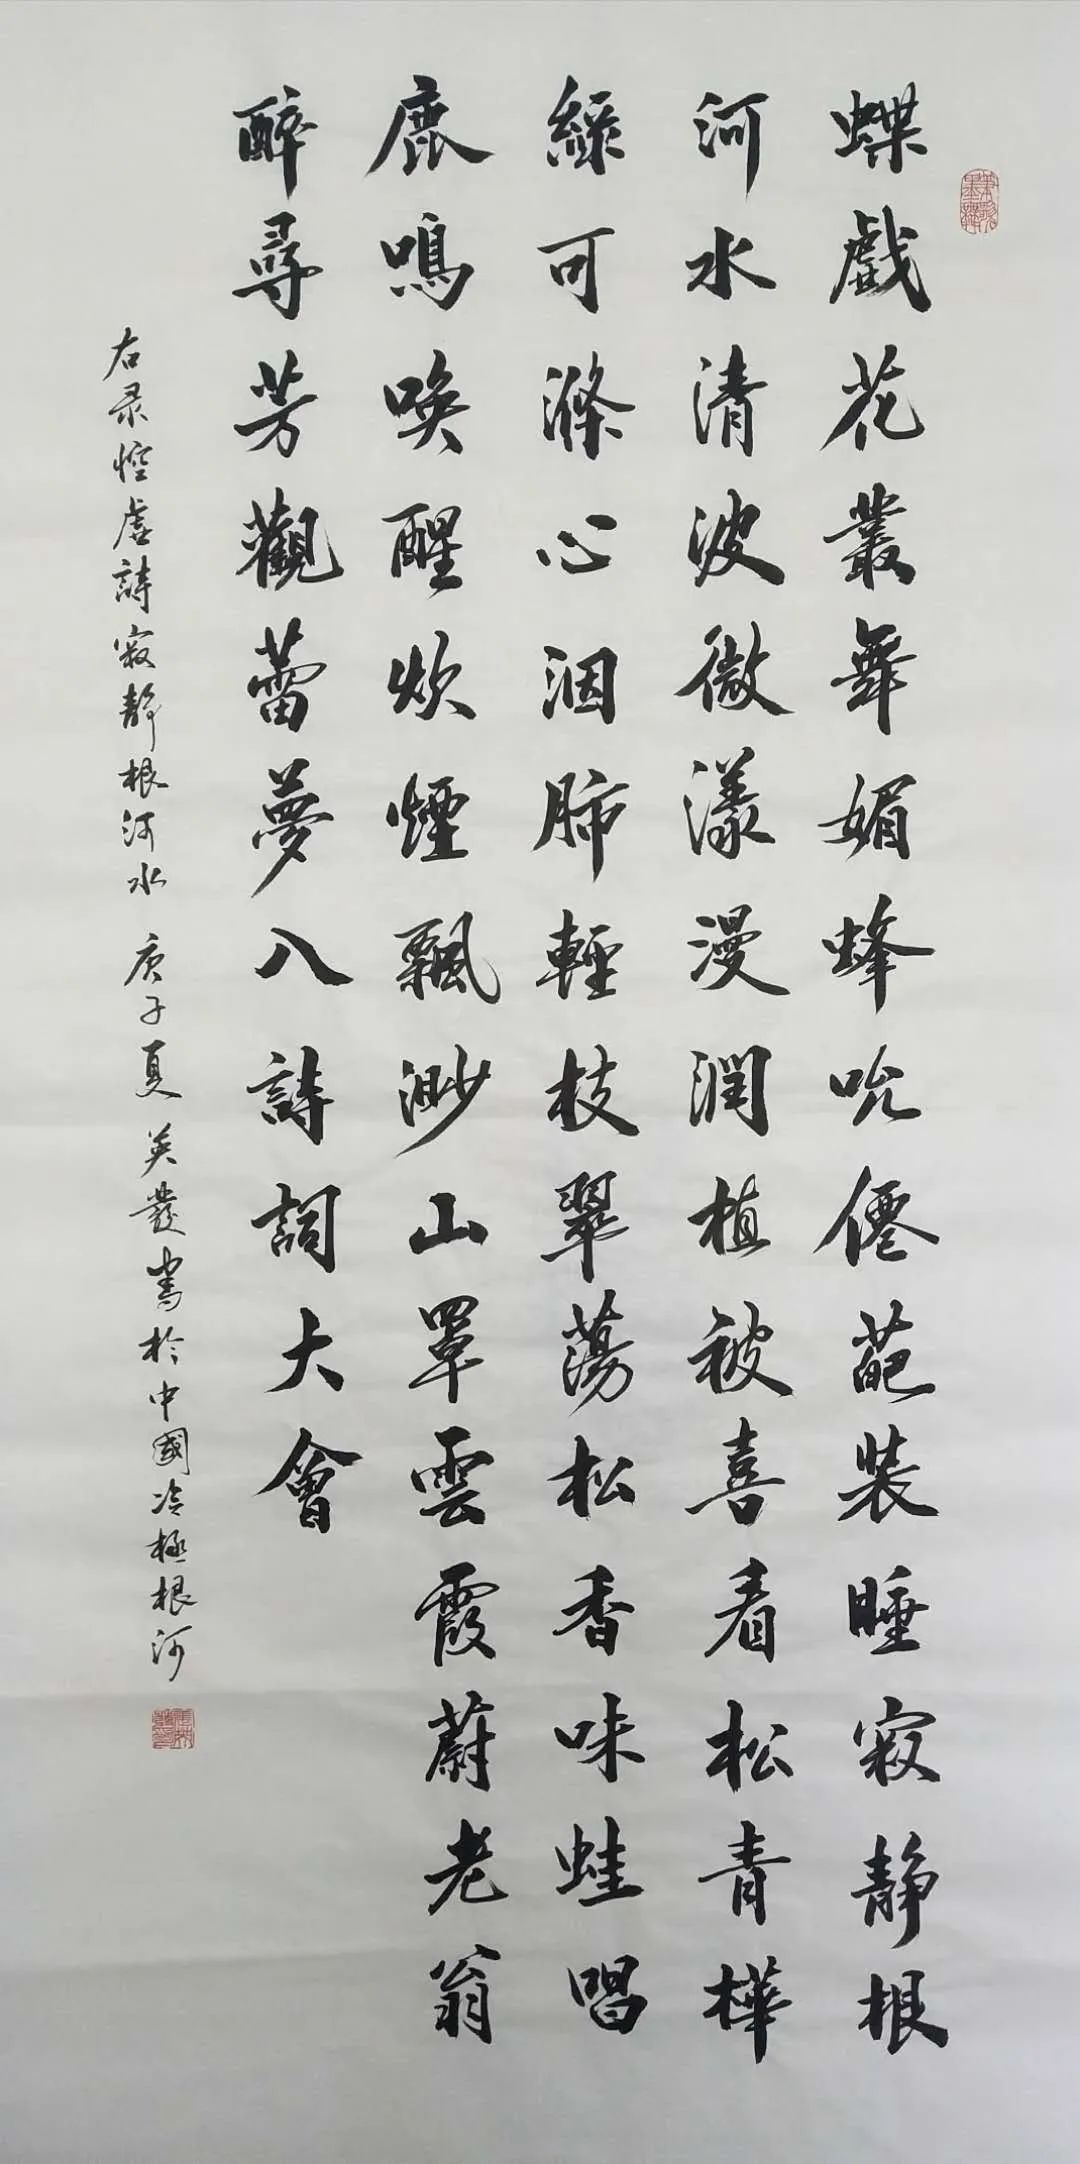 蝶戲花叢舞媚蜂吮僊葩裝睡寂静根
河水清波微漾漫潤植被喜看松青樺
綠可滌心洇肺輕枝翠蕩松香味蛙唱
鹿鳴喚醒炊煙飄渺山罩雲霞蔚老翁
醉尋芳觀蕾夢入詩詞大會
右录悾虛詩寂靜根河水 庚子夏 英發書於中國冷極根河